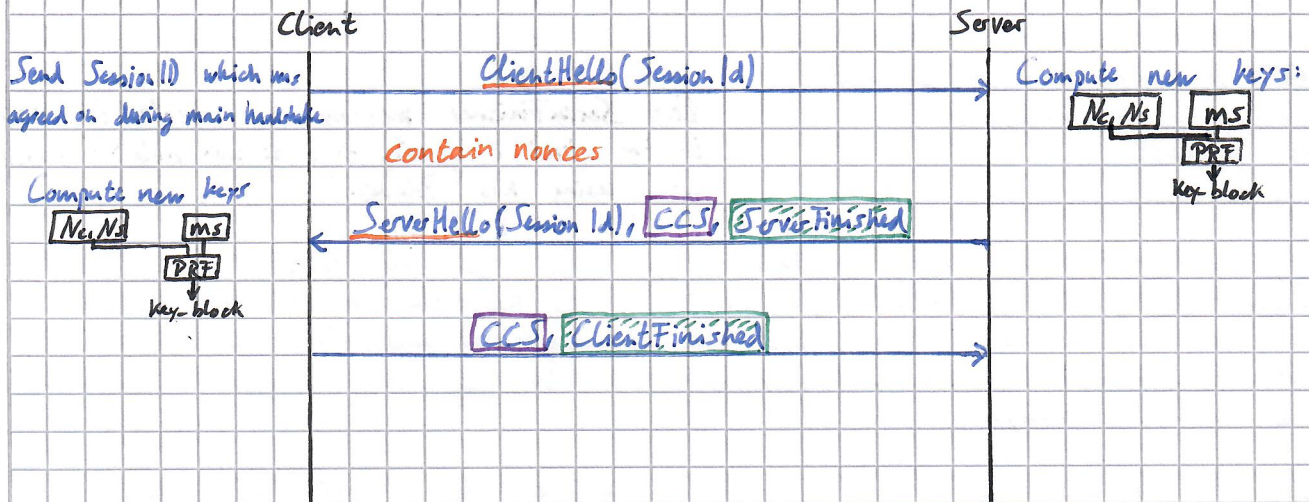 Client
Server
Send SessionID which ms
agreed on during main handshake
ClientHello(Session Id)
Compute new keys:
Nc, Ns
ms
PRF
key-block
contain nonces
Compute new keys
Nc, Ns
ms
PRF
key-block
ServerHello(Session Id), CCS, ServerFinished
CCS, ClientFinished